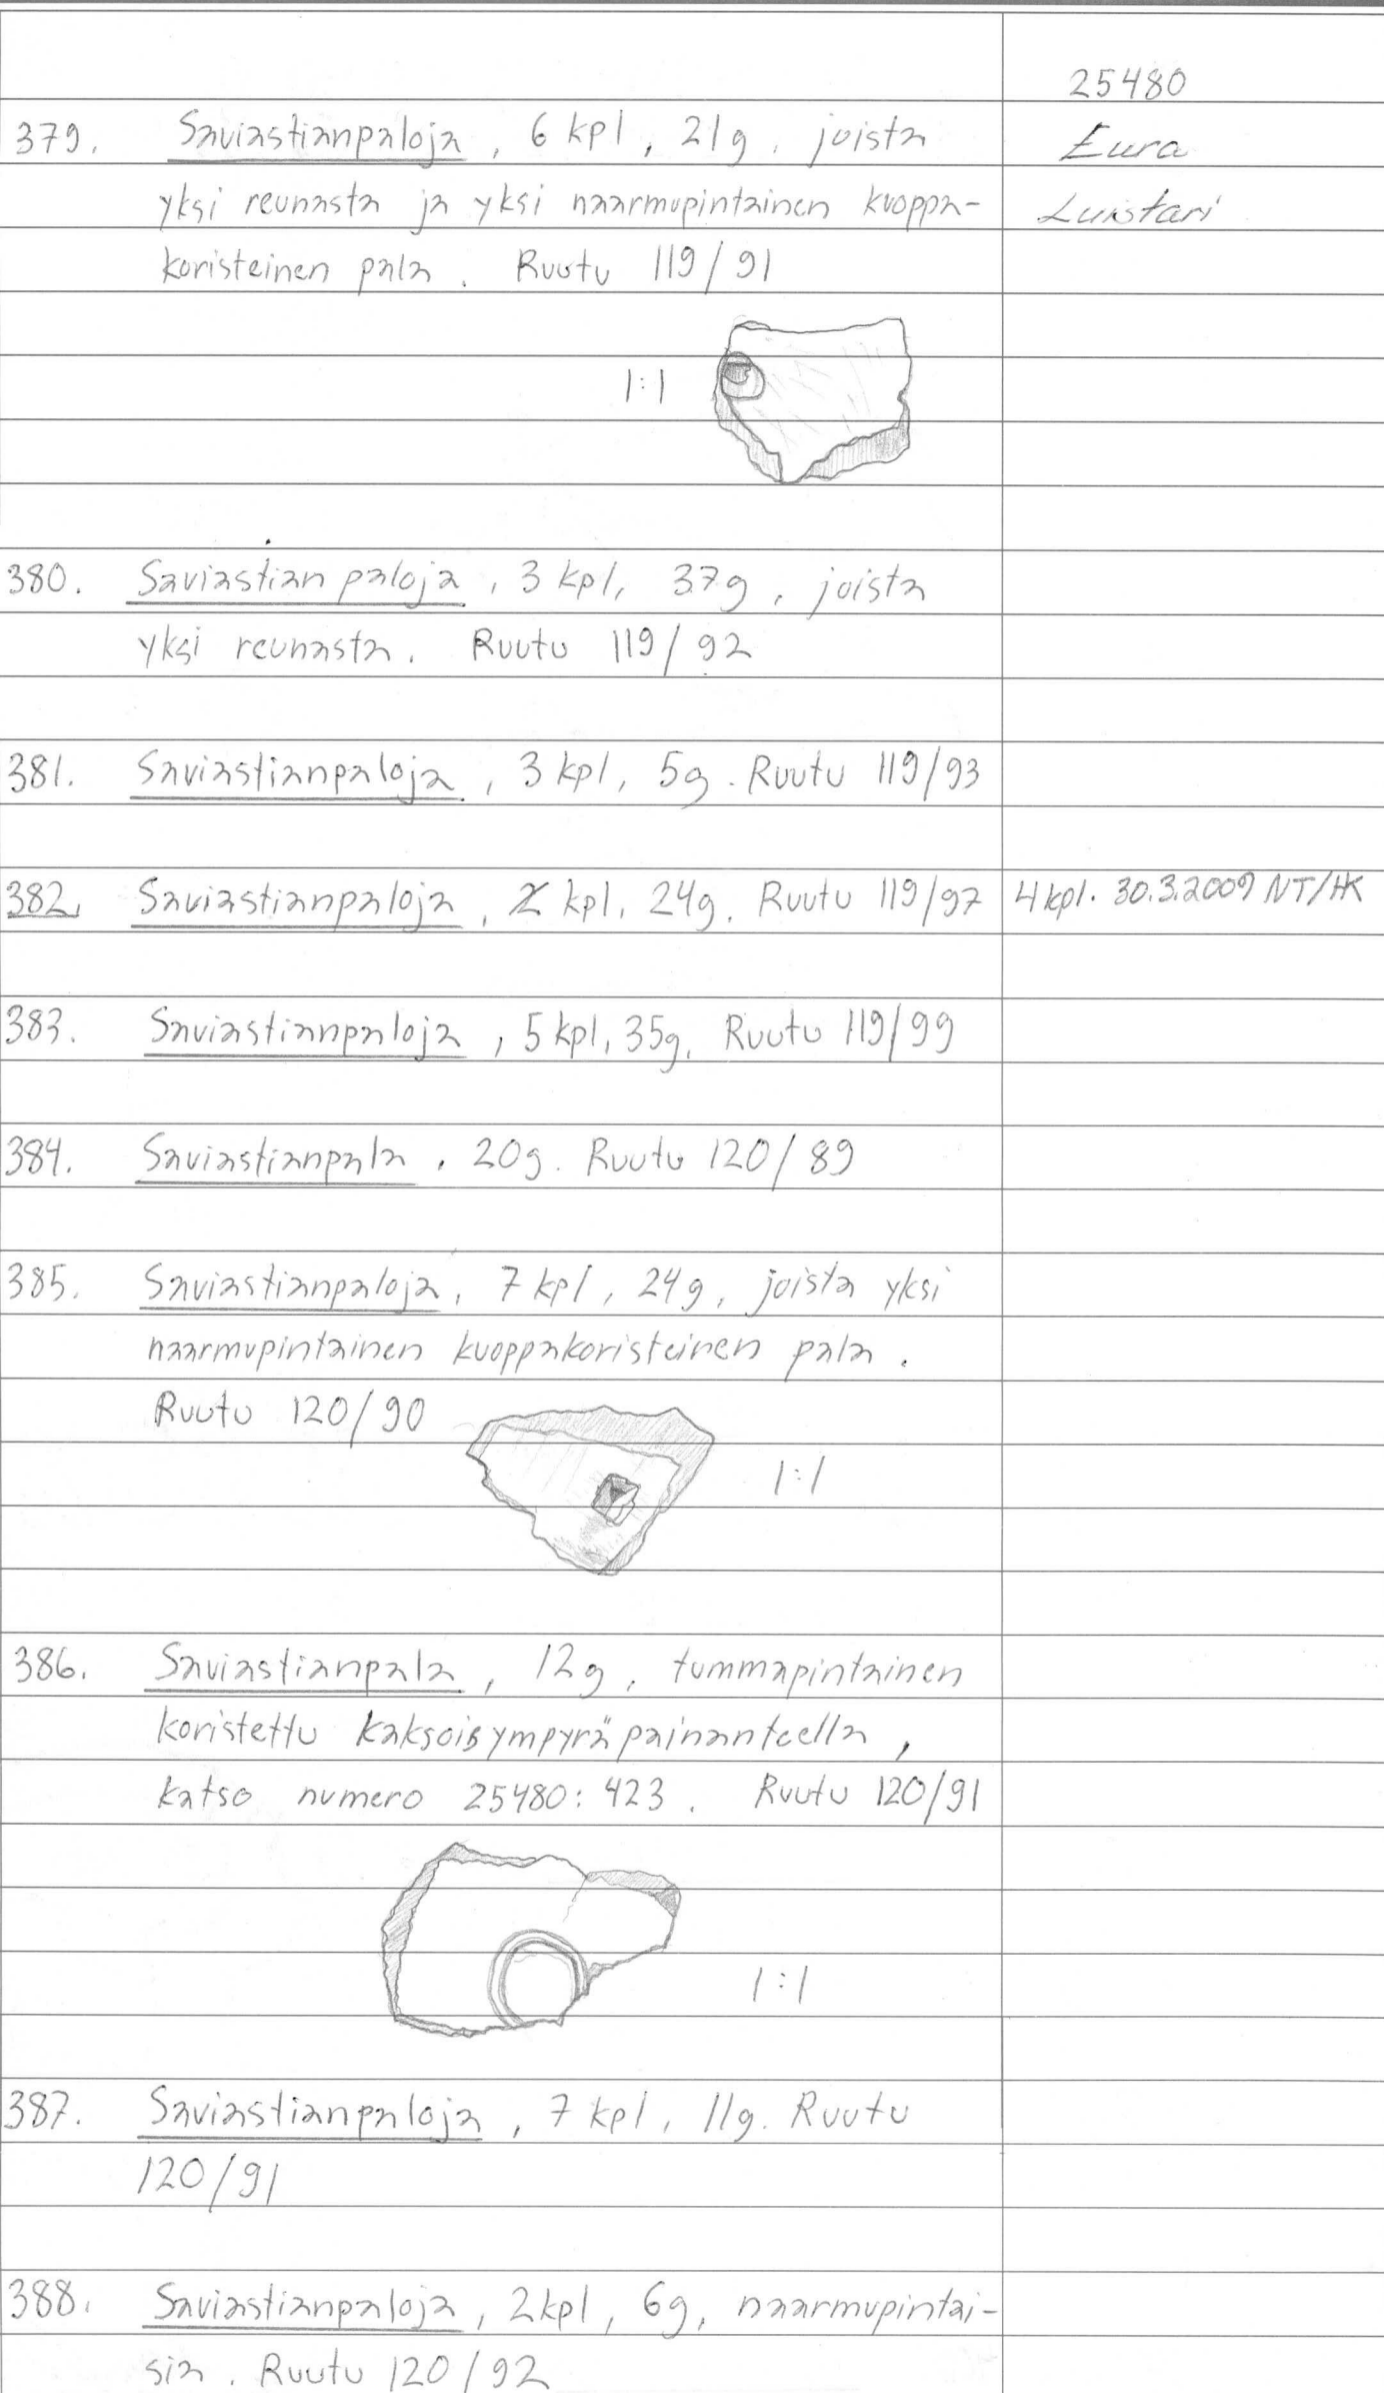 25480
379. Saviastianpaloja, 6 kpl, 21g, joista
Eura
yksi reunasta ja yksi naarmupintainen kuoppa-
Luistari
koristeinen pala. Ruutu 119/91
1:1
380. Saviastian paloja, 3 kpl, 37g, joista
yksi reunasta. Ruutu 119/92
381. Saviastianpaloja, 3 kpl, 5g. Ruutu 119/93
382. Saviastianpaloja, kpl, 24g. Ruutu 119/97
4 kpl. 30.3.2009 NT/HK
383. Saviastianpaloja, 5 kpl, 35g, Ruutu 119/99
384. Saviastianpala, 20g. Ruutu 120/89
385. Saviastianpaloja, 7 kpl, 24g, joista yksi
naarmupintainen kuoppakoristeinen pala.
Ruutu 120/90
1:1
386. Saviastianpala, 12g, tummapintainen
koristettu kaksoisympyräpainanteella,
katso numero 25480:423. Ruutu 120/91
1:1
387. Saviastianpaloja, 7 kpl, 11g. Ruutu
120/91
388. Saviastianpaloja, 2 kpl, 6g, naarmupintai-
sia. Ruutu 120/92